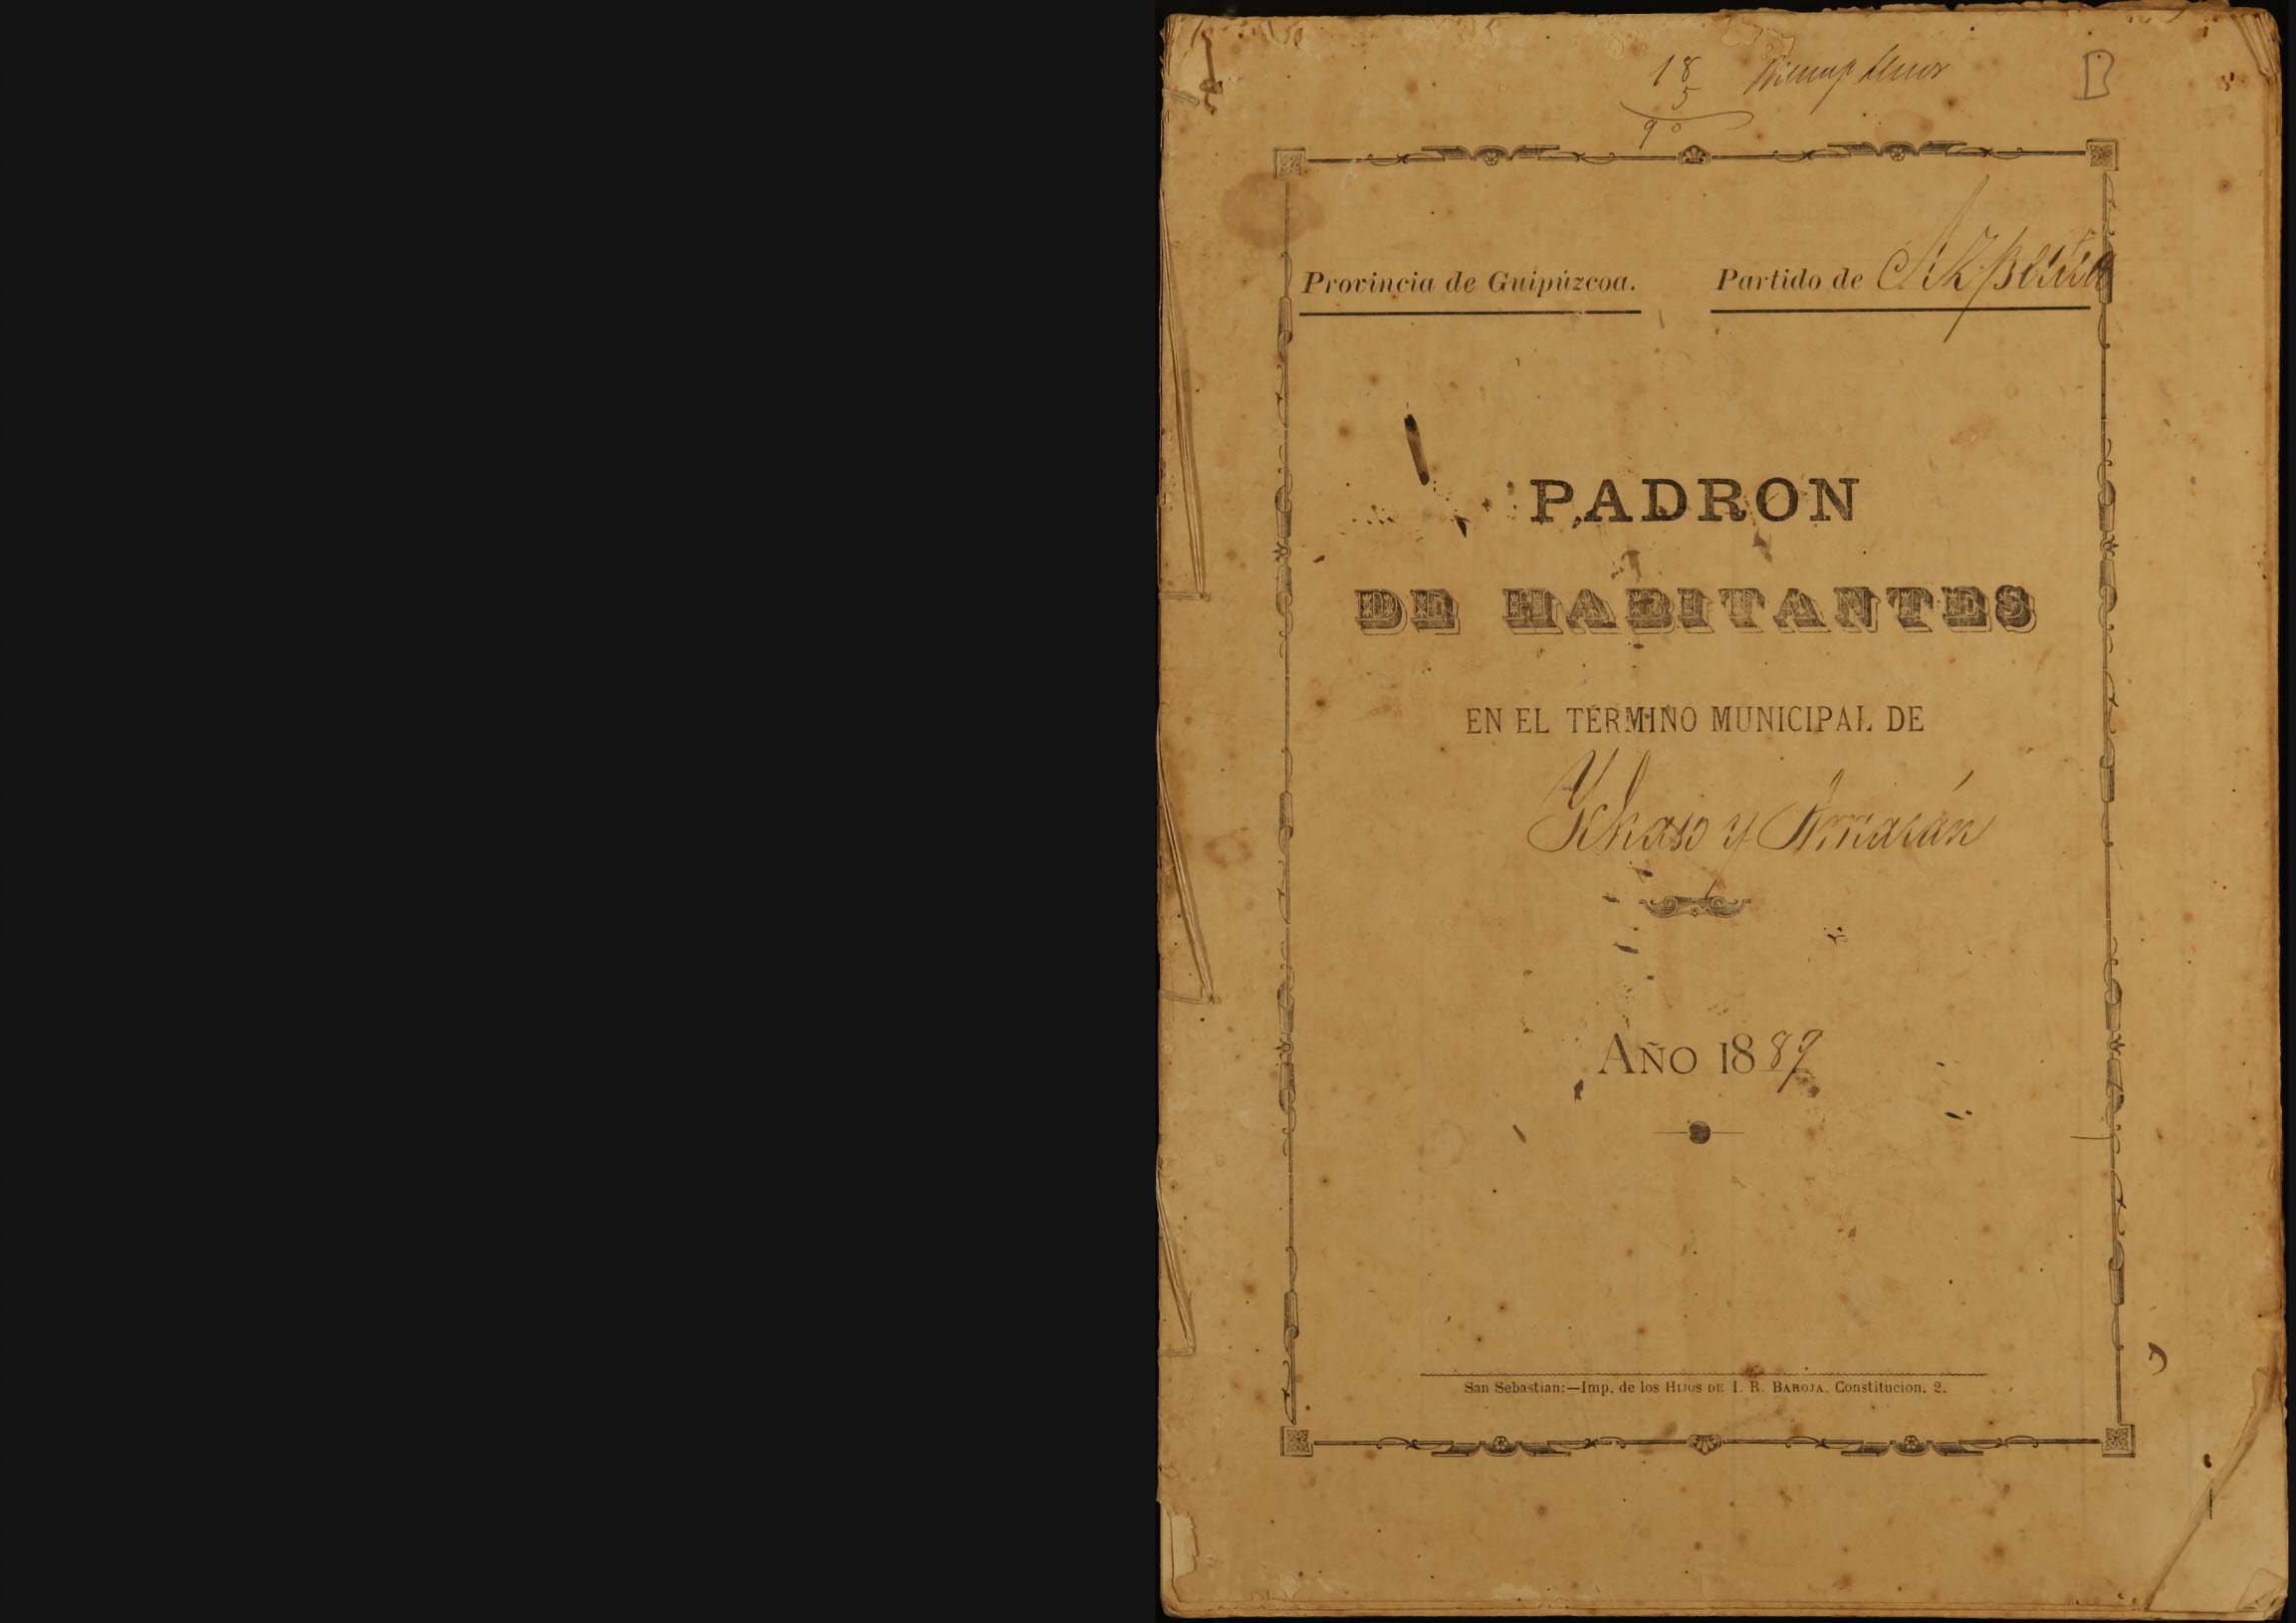 18
5
90
Provincia de Guipúzcoa. Partido de Azpeitia
PADRON
DE HABITANTES
EN EL TÉRMINO MUNICIPAL DE
Ychaso y Arriarán
AÑO 1889
San Sebastian:—Imp. de los HIJOS DE I. R. BAROJA, Constitucion, 2.